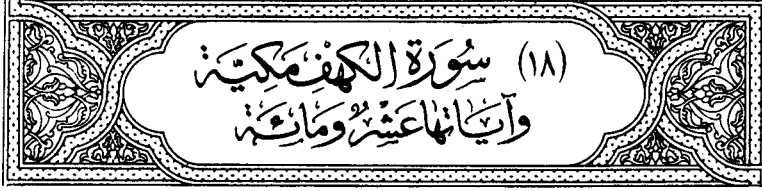 (١٨) سُورَةُ الكَهْفِ مَكِيَّة
وَآيَاتُهَا عَشْرٌ وَمَائِة